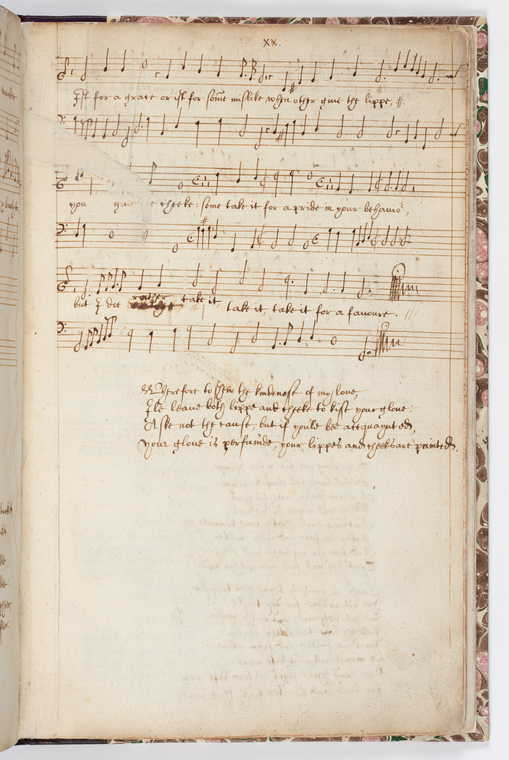 xx.
Ist for a grace or ist for some mislike when other giue the lippe
you giue cheeke: some take it for a pride in your behavio^r,
but I doe rather take it, take it, take it for a fauoure.
Wherefore to shew the kindenesse of my loue,
Ile leaue both lippe and cheeke to kisse your gloue:
Aske not the cause, but if youle bee acquaynted,
your gloue is perfumde, your lippes and cheekes are painted.